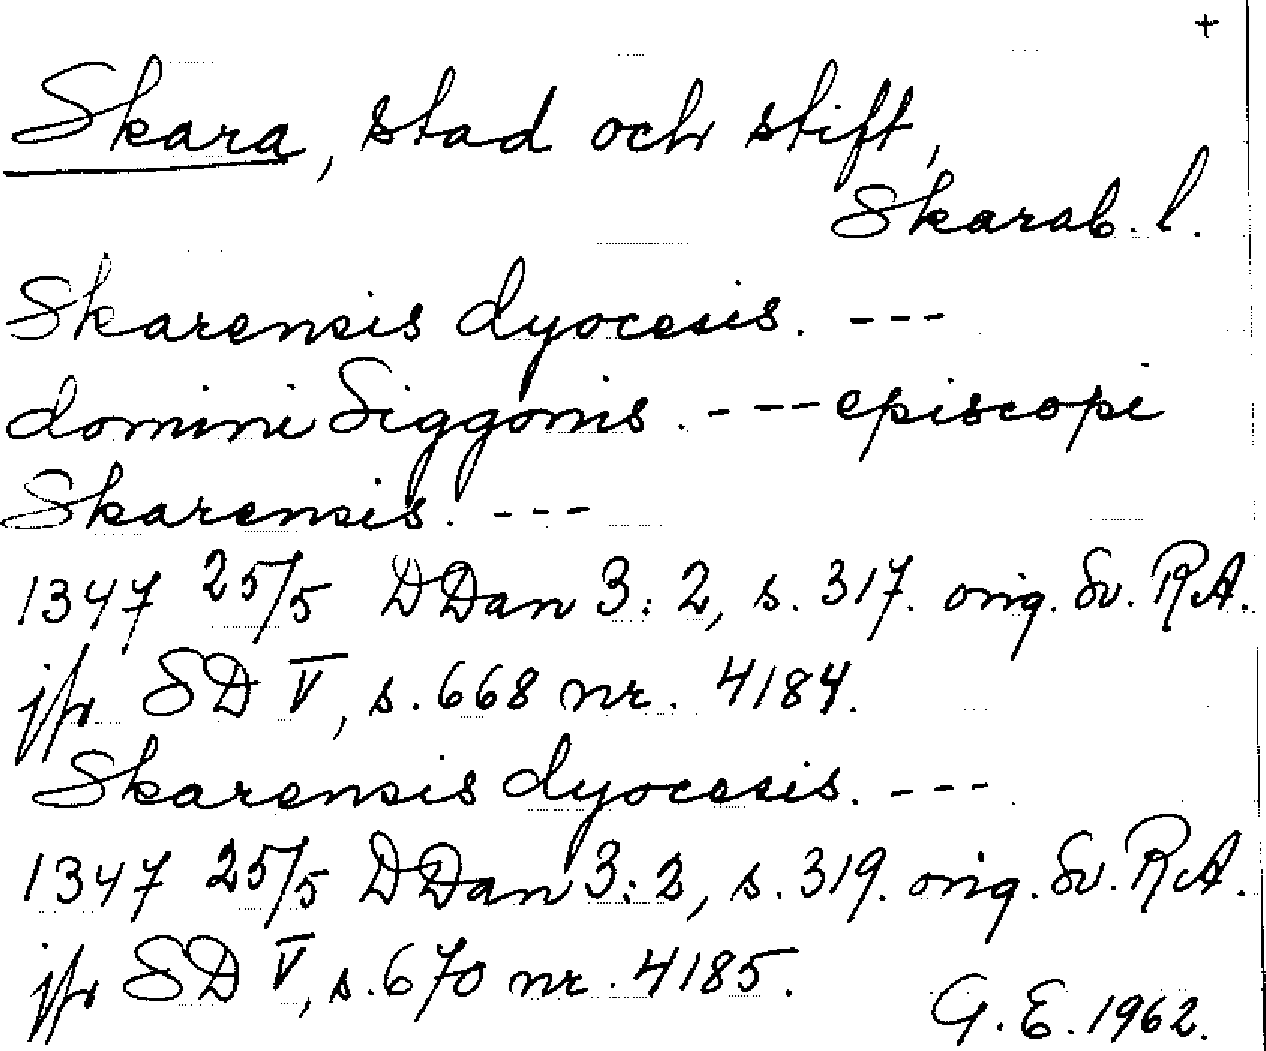 +
Skara, stad och stift,
Skarab. l.
Skarensis dyocesis. ---
domini Siggonis. --- episcopi
Skarensis. ---
1347 25/5 DDan 3: 2, s. 317. orig. Sv. RA.
jfr SD V, s. 668 nr. 4184.
Skarensis dyocesis. ---
1347 25/5 DDan 3: 2, s. 319. orig. Sv. RA.
jfr SD V, s. 670 nr. 4185.
G. E. 1962.